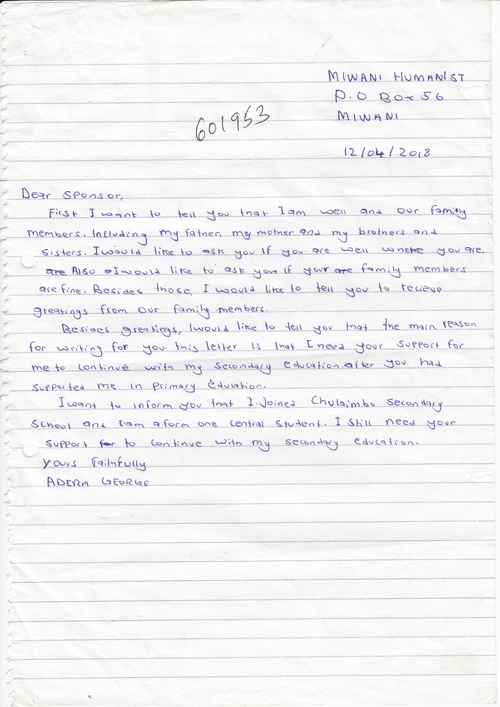 MIWANI HUMANIST
P.O BOX 56
601953
MIWANI
12/04/2018
Dear Sponsor,
First I want to tell you that I am well and our family
members. Including my father, my mother and my brothers and
sisters. I would like to ask you If you are well where you are.
are Also I would like to ask you If your are family members
are fine. Besides those, I would like to tell you to recieve
greatings from our family members.
Besides greatings, I would like to tell you that the main reason
for writing for you this letter is that I need your support for
me to continue with my secondary education after you had
supported me in primary education.
I want to inform you that I joined Chulaimbo secondary
school and I am a form one central student. I still need your
support for to continue with my secondary education.
Yours faithfully
ADERA GEORGE